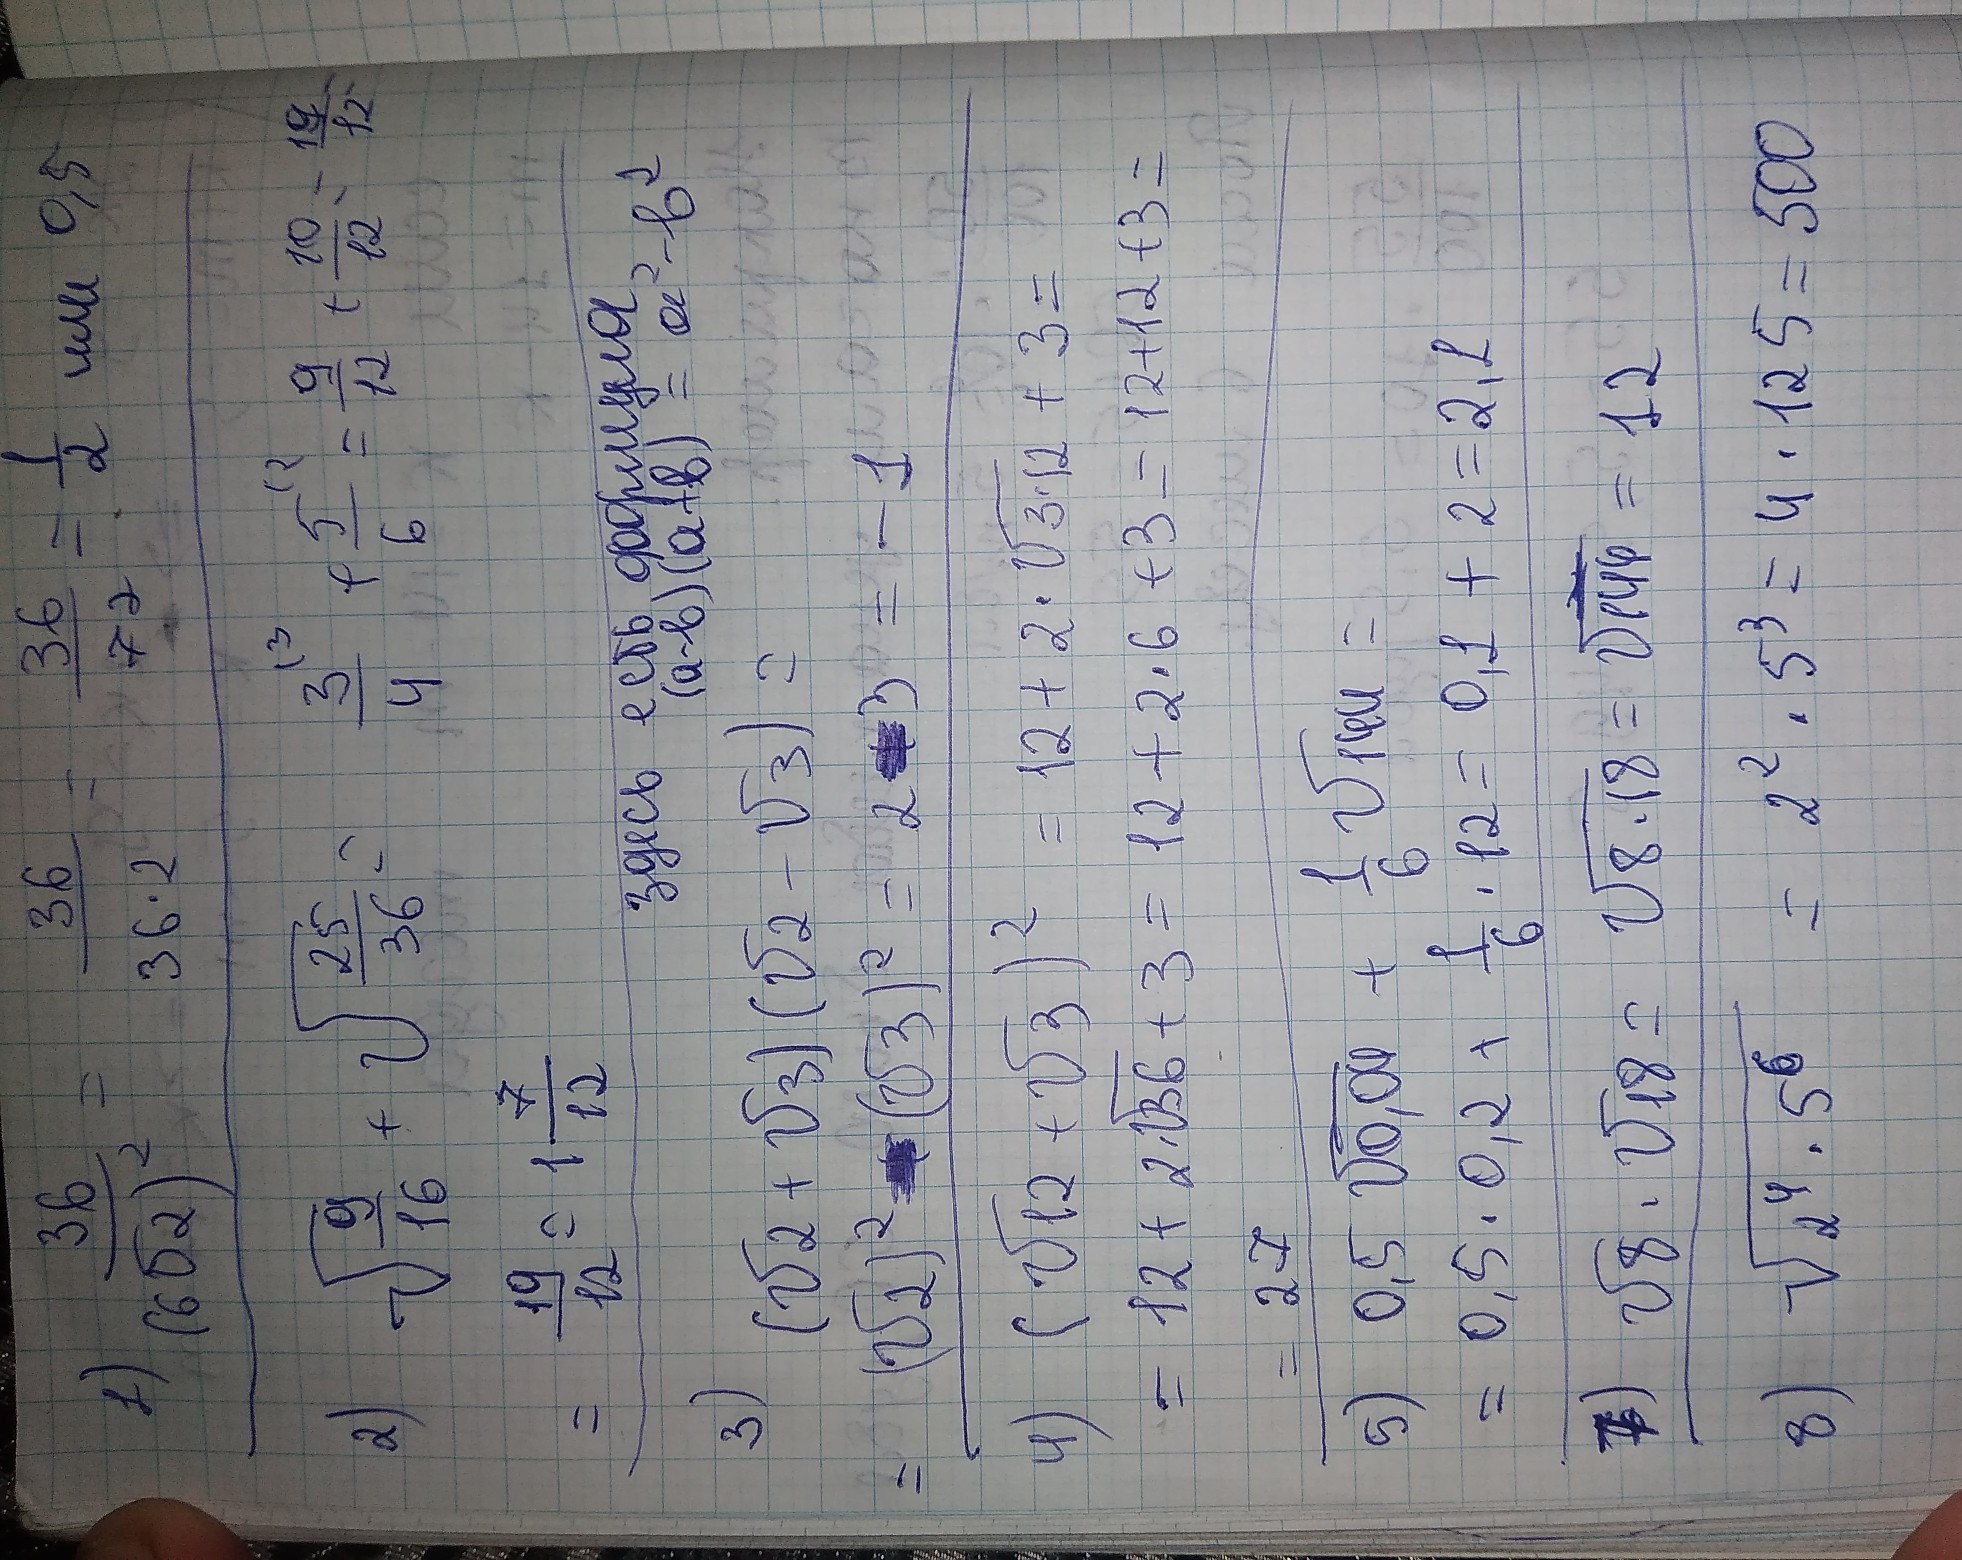 1) 36/(6√2)² = 36/36·2 = 36/72 = 1/2 или 0,5
2) √(9/16) + √(25/36) = 3/4 (3 + 5/6 (2 = 9/12 + 10/12 = 19/12
= 19/12 = 1 7/12
здесь есть формула
(a-b)(a+b) = a²-b²
3) (√2 + √3)(√2 - √3) =
= (√2)² - (√3)² = 2 - 3 = - 1
4) (√12 + √3)² = 12 + 2·√3·12 + 3 =
= 12 + 2·√36 + 3 = 12 + 2·6 + 3 = 12+12+3 =
= 27
5) 0,5 √0,04 + 1/6 √144 =
= 0,5 · 0,2 + 1/6 · 12 = 0,1 + 2 = 2,1
7) √8 · √18 = √8·18 = √144 = 12
8) √2⁴ · 5⁶ = 2² · 5³ = 4 · 125 = 500